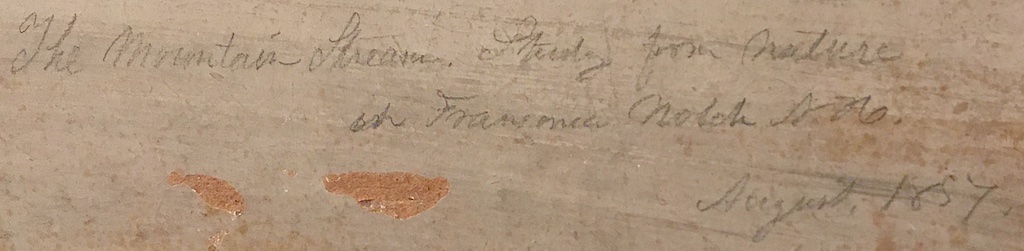 The Mountain Stream. Study from nature
in Franconia Notch N H.
August, 1857.